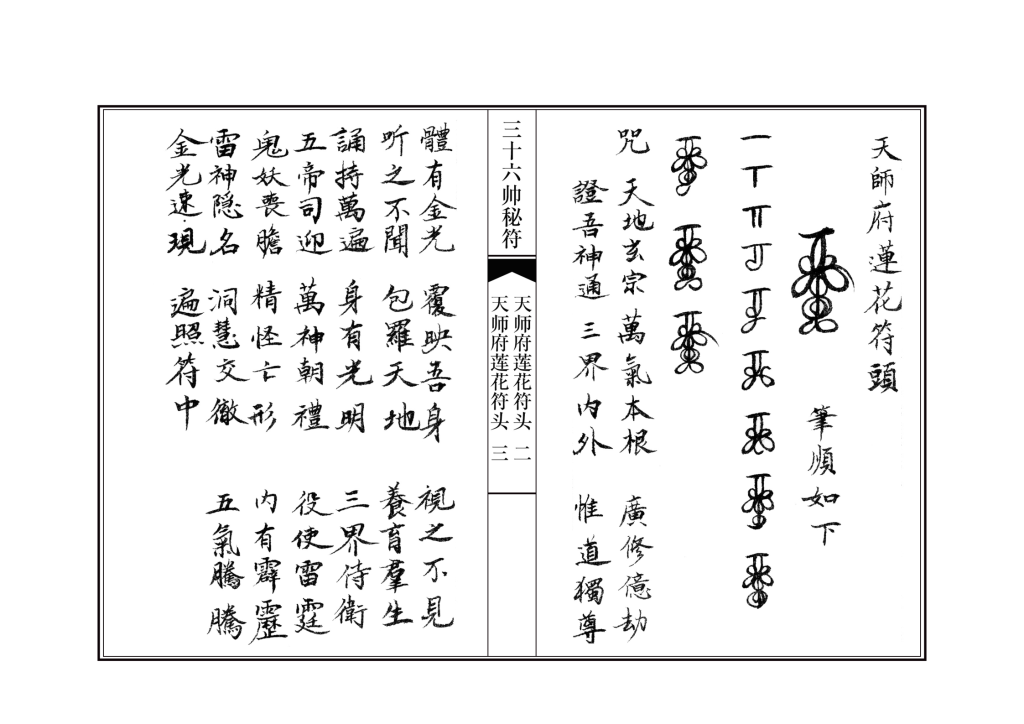 天師府蓮花符頭
筆順如下
咒 天地玄宗 萬氣本根 廣修億劫
證吾神通 三界內外 惟道獨尊
三十六帅秘符
天师府莲花符头 二
天师府莲花符头 三
體有金光 覆映吾身 視之不見
听之不聞 包羅天地 養育羣生
誦持萬遍 身有光明 三界侍衛
五帝司迎 萬神朝禮 役使雷霆
鬼妖喪膽 精怪亡形 内有霹靂
雷神隐名 洞慧交徹 五氣騰騰
金光速現 遍照符中